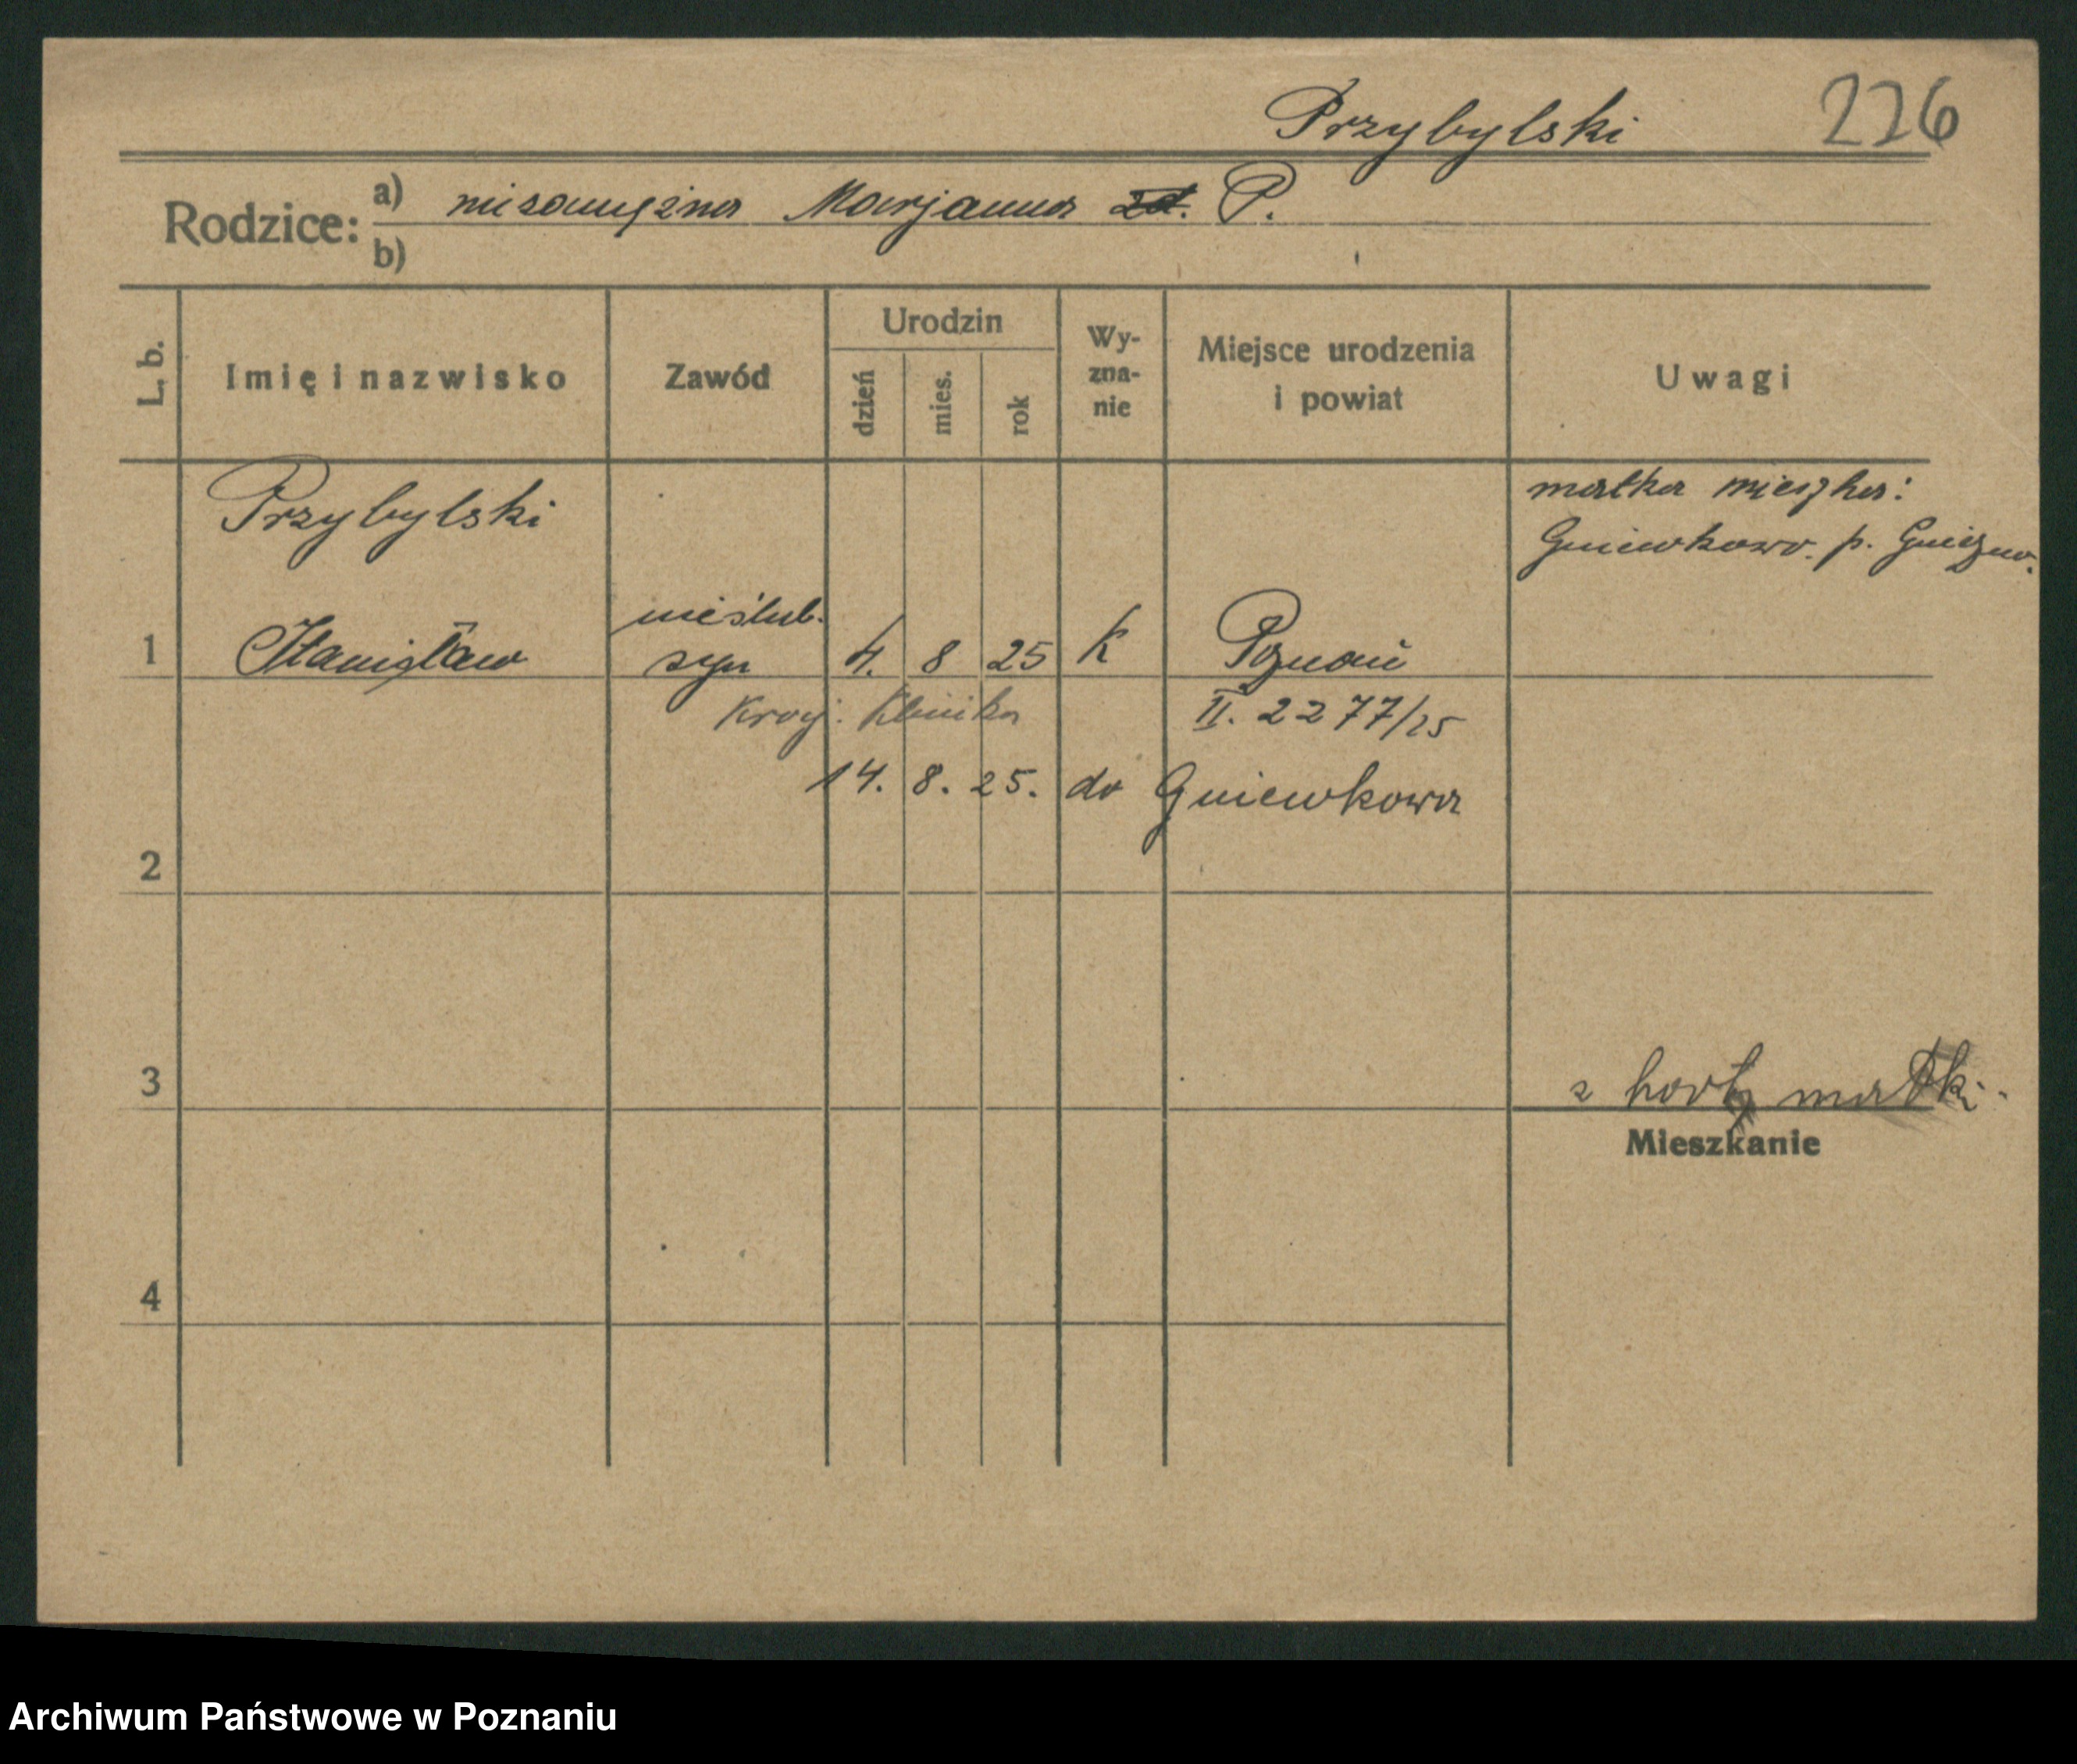 Przybylski 226
Rodzice: a) niezamężna Marjanna zd. P.
b)
L. b.
Imię i nazwisko
Zawód
Urodzin
dzień
mies.
rok
Wy-
zna-
nie
Miejsce urodzenia
i powiat
Uwagi
Przybylski
matka mieszka:
Gniewkowo. p. Gniezno.
nieślub.
1 Stanisław syn 4. 8 25 K Poznań
Kraj. Klinika II. 2277/25
14. 8. 25. do Gniewkowa
2
3
z karty matki.
Mieszkanie
4
Archiwum Państwowe w Poznaniu